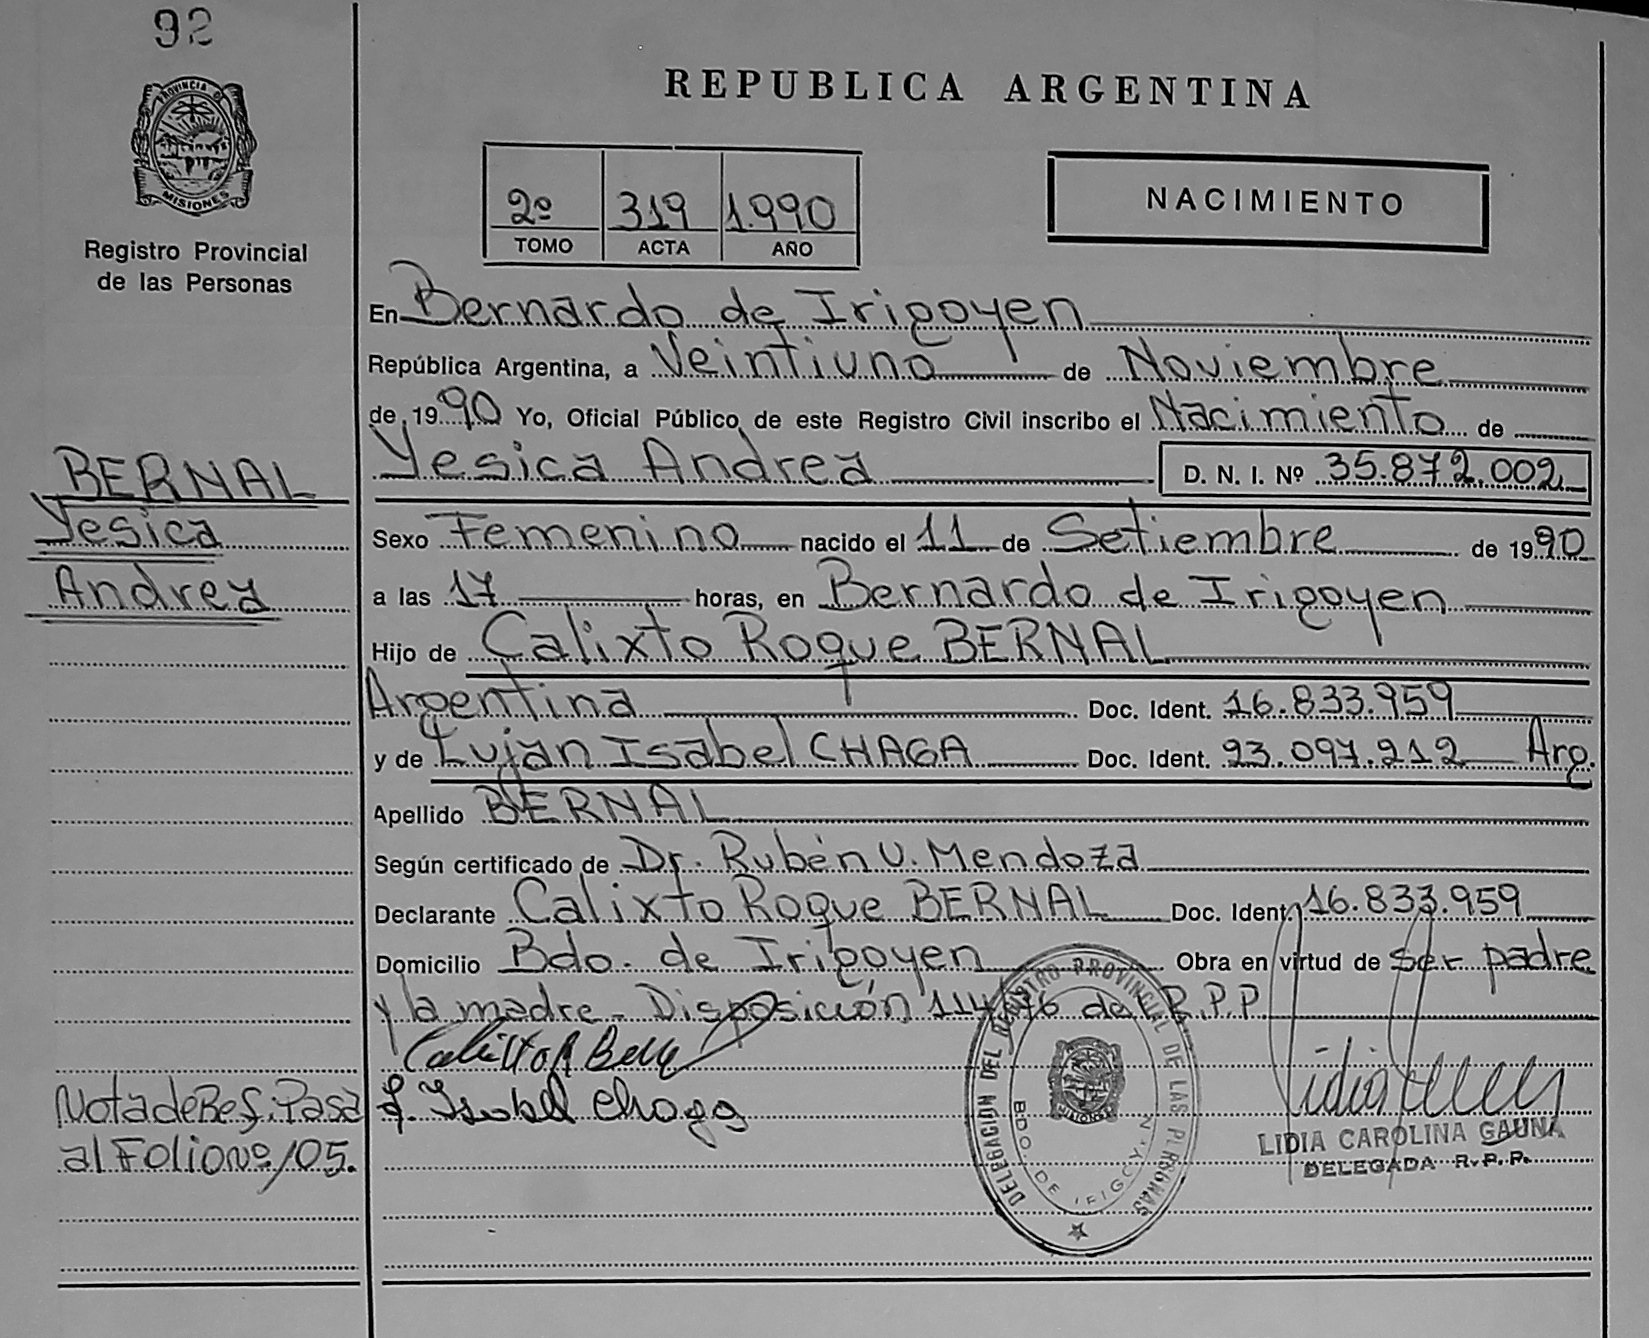 92
PROVINCIA D
MISIONES
Registro Provincial
de las Personas
REPUBLICA ARGENTINA
2º 319 1.990
TOMO ACTA AÑO
NACIMIENTO
En Bernardo de Irigoyen
República Argentina, a Veintiuno de Noviembre
de 19 90 Yo, Oficial Público de este Registro Civil inscribo el Nacimiento de
Yesica Andrea D. N. I. Nº 35.872.002
BERNAL
Yesica
Andrea
Sexo Femenino nacido el 11 de Setiembre de 19 90
a las 17 horas, en Bernardo de Irigoyen
Hijo de Calixto Roque BERNAL
Argentina Doc. Ident. 16.833.959
y de Lujan Isabel CHAGA Doc. Ident. 93.097.212 Arg.
Apellido BERNAL
Según certificado de Dr. Rubén U. Mendoza
Declarante Calixto Roque BERNAL Doc. Ident. 16.833.959
Domicilio Bdo. de Irigoyen Obra en virtud de ser padre
y la madre - Disposición 114/76 del R.P.P
Calixto R Bern
L. Isabel Chaga
Nota de Ref. Pasa
al Folio Nº 105.
DELEGACION DEL REGISTRO PROVINCIAL DE LAS PERSONAS
BDO. DE IRIGOYEN
MISIONES
LIDIA CAROLINA GAUNA
DELEGADA R.P.P.